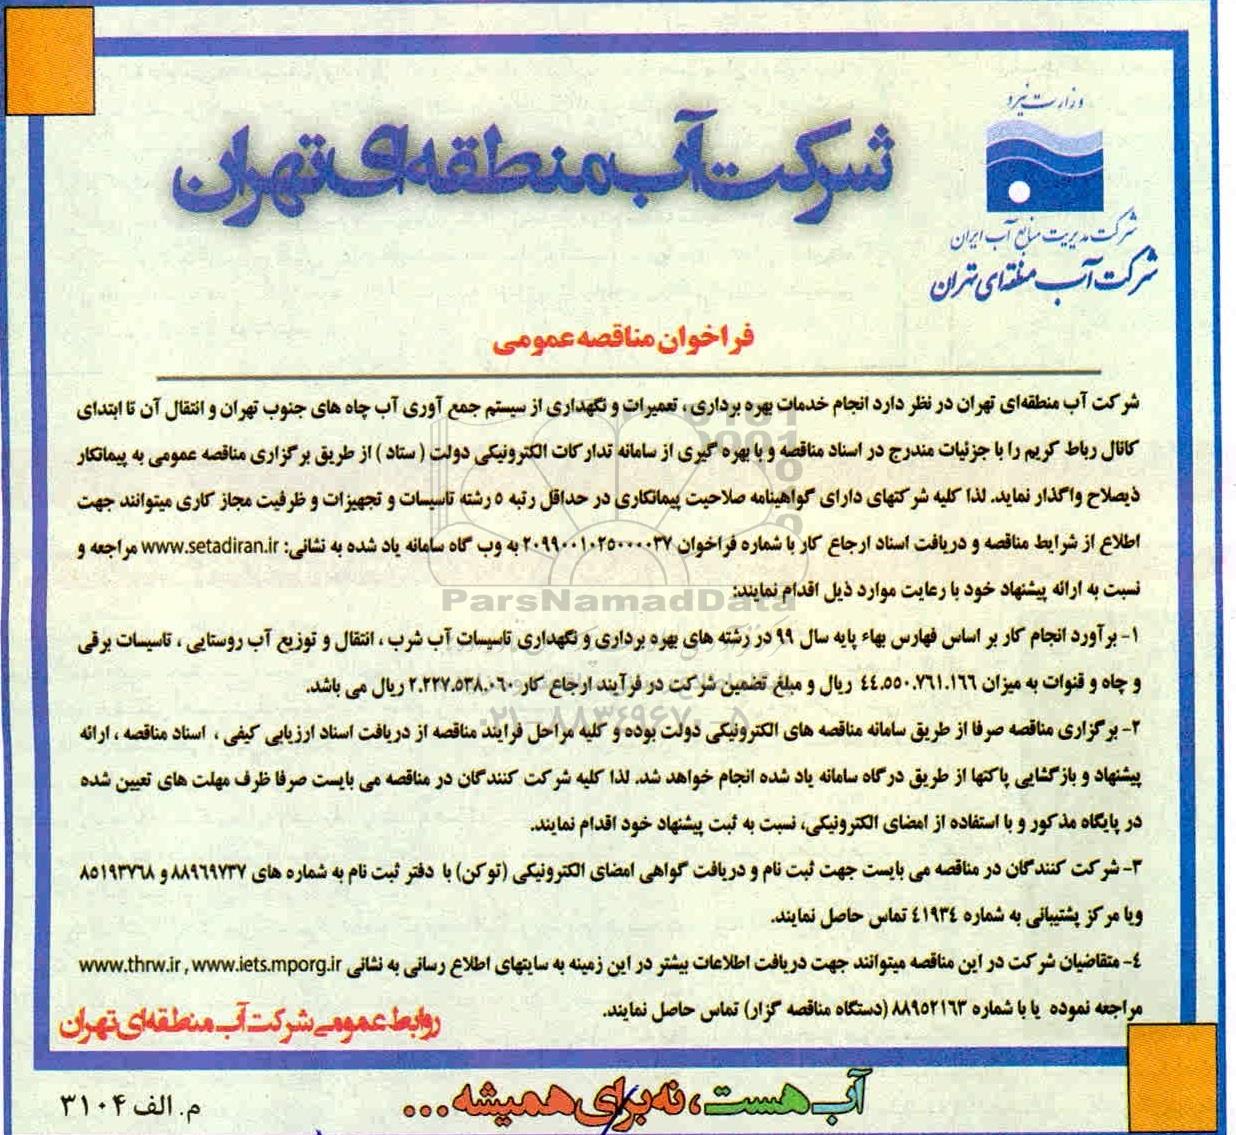 وزارت نیرو
شرکت مدیریت منابع آب ایران
شرکت آب منطقه‌ای تهران
شرکت آب منطقه‌ای تهران
فراخوان مناقصه عمومی
شرکت آب منطقه‌ای تهران در نظر دارد انجام خدمات بهره برداری ، تعمیرات و نگهداری از سیستم جمع آوری آب چاه های جنوب تهران و انتقال آن تا ابتدای
کانال رباط کریم را با جزئیات مندرج در اسناد مناقصه و با بهره گیری از سامانه تدارکات الکترونیکی دولت ( ستاد ) از طریق برگزاری مناقصه عمومی به پیمانکار
ذیصلاح واگذار نماید. لذا کلیه شرکتهای دارای گواهینامه صلاحیت پیمانکاری در حداقل رتبه ۵ رشته تاسیسات و تجهیزات و ظرفیت مجاز کاری میتوانند جهت
اطلاع از شرایط مناقصه و دریافت اسناد ارجاع کار با شماره فراخوان ۲۰۹۹۰۰۱۰۲۵۰۰۰۰۳۷ به وب گاه سامانه یاد شده به نشانی: www.setadiran.ir مراجعه و
نسبت به ارائه پیشنهاد خود با رعایت موارد ذیل اقدام نمایند:
ParsNamadData
۱- برآورد انجام کار بر اساس فهارس بهاء پایه سال ۹۹ در رشته های بهره برداری و نگهداری تاسیسات آب شرب ، انتقال و توزیع آب روستایی ، تاسیسات برقی
و چاه و قنوات به میزان ۴۴.۵۵۰.۷۶۱.۱۶۶ ریال و مبلغ تضمین شرکت در فرآیند ارجاع کار ۲.۲۲۷.۵۳۸.۰۶۰ ریال می باشد.
۰۲۱-۸۸۳۴۹۶۷۰-۵
۲- برگزاری مناقصه صرفا از طریق سامانه مناقصه های الکترونیکی دولت بوده و کلیه مراحل فرایند مناقصه از دریافت اسناد ارزیابی کیفی ، اسناد مناقصه ، ارائه
پیشنهاد و بازگشایی پاکتها از طریق درگاه سامانه یاد شده انجام خواهد شد. لذا کلیه شرکت کنندگان در مناقصه می بایست صرفا ظرف مهلت های تعیین شده
در پایگاه مذکور و با استفاده از امضای الکترونیکی، نسبت به ثبت پیشنهاد خود اقدام نمایند.
۳- شرکت کنندگان در مناقصه می بایست جهت ثبت نام و دریافت گواهی امضای الکترونیکی (توکن) با دفتر ثبت نام به شماره های ۸۸۹۶۹۷۳۷ و ۸۵۱۹۳۷۶۸
ویا مرکز پشتیبانی به شماره ۴۱۹۳۴ تماس حاصل نمایند.
۴- متقاضیان شرکت در این مناقصه میتوانند جهت دریافت اطلاعات بیشتر در این زمینه به سایتهای اطلاع رسانی به نشانی www.thrw.ir , www.iets.mporg.ir
مراجعه نموده یا با شماره ۸۸۹۵۲۱۶۳ (دستگاه مناقصه گزار) تماس حاصل نمایند.
روابط عمومی شرکت آب منطقه‌ای تهران
آب هست، نه برای همیشه ...
م. الف ۳۱۰۴